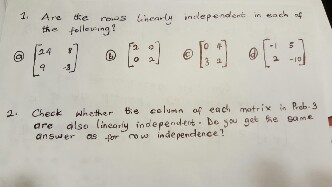 1. Are the rows linearly independent in each of
the following?
(a) [24 8 (b) [2 0 (c) [0 4 (d) [-1 5
9 -3] 0 2] 3 2] 2 -10]
2. Check whether the column of each matrix in Prob. 3
are also linearly independent. Do you get the same
answer as for row independence?